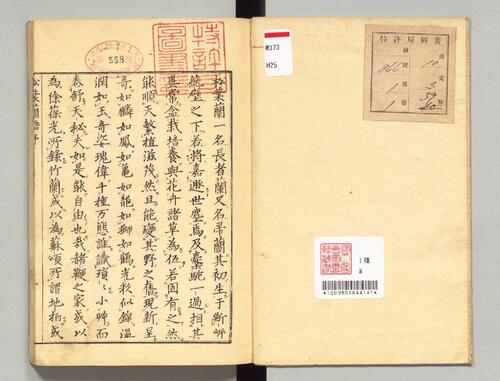 松葉蘭一名長者蘭又名吊蘭其初生于斷岬
絶壁之下若將嘉遯世塵焉及橐駝一過相其
異常盆栽培養與花卉諸草為伍若固有之然
能順天繁植滋茂然且能變其野之舊現新呈
奇如麟如鳳如亀如龍如獅如鶴光彩似錦温
潤如玉奇姿瑰偉千種万態誰識瑣々小艸而
卷舒天秘夫如是能自由也哉諸鞭之家或以
為徐葆光所錄竹蘭或以為蘇頌所謂地柏或
松葉蘭譜序
特許局圖書
558
W373
H25
特許局圖書
1
1
10
3
39
1種
*1200901844141*